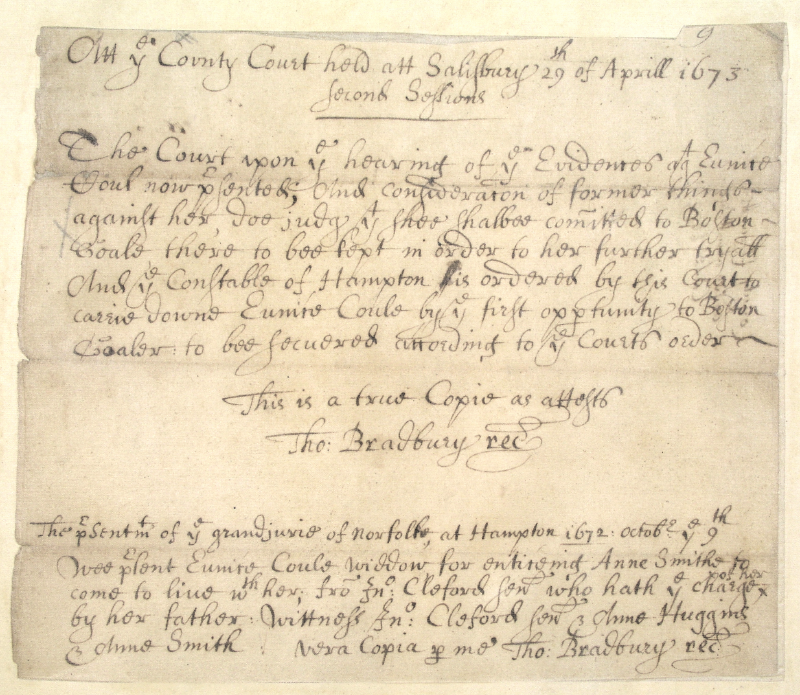 9
Att yᵉ County Court held att Salisbury 29ᵗʰ of Aprill 1673
second Sessions
The Court upon yᵉ hearing of yᵉ Evidences agᵗ Eunice
Coul now pʳsented; And consideration of former things
against her, doe judg yᵗ shee shalbee comitted to Boston
Goale there to bee kept in order to her further tryall
And yᵉ Constable of Hampton is ordered by this Court to
carrie downe Eunice Coule by yᵉ first opptunity to Boston
Goaler: to bee secuered according to yᵉ Courts order
This is a true Copie as attests
Tho: Bradbury rec
The pʳsentmᵗ of yᵉ grandjurie of Norfolke, at Hampton 1672: octobʳ yᵉ 9ᵗʰ
Wee pʳsent Eunice Coule widdow for enticeing Anne Smithe to
come to live wᵗʰ her; frō Jnᵒ: Cleford senʳ who hath yᵉ charge of her
by her father: Wittness Jnᵒ: Cleford senʳ & Anne Huggins
& Anne Smith : vera Copia p me Tho: Bradbury rec